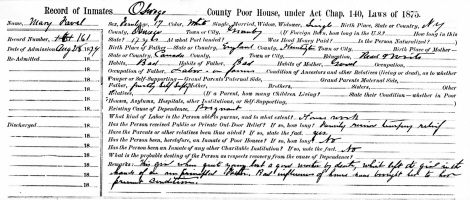 Record of Inmates Otsego County Poor House, under Act Chap. 140, Laws of 1875.
Name Mary
Sex, Female 17 Color, White Single, Married, Widow, Widower, Single Birth Place—State or Country, N.Y.
County, Town or City, (If Foreign Born, how long in the U.S.? How long in this
Record Number, 161
State? 17 yrs If out Landed, at what Port? Was Head Money Paid? Is the Person Naturalized?
Date of Admission, Aug 28 1879
Birth Place of Father—State or Country, England County, Town or City, Birth Place of Mother—
Re-Admitted 18
State or Country, Canada County, Town or City, Education, Read & Write
18
Habits, Bad Habits of Father, Bad Habits of Mother, Good Occupation,
18
Occupation of Father, Labor on farm Condition of Ancestors and other Relatives (living or dead), as to whether
18
Pauper or Self-Supporting— Grand Parents Paternal Side, Grand Parents Maternal Side,
18
Father, partly self supp Mother, Brothers, Sisters, Others
18
(If a Parent, how many Children Living? State their Condition—whether in Poor
18
House, Asylums, Hospitals, other Institutions, or Self-Supporting,
18
Existing Cause of Dependence, Pregnant
18
What kind of Labor is the Person able to pursue, and to what extent? House work
Discharged 18
Has the Person received Public or Private Out Door Relief? If so, how long? Family receives temporary relief
18
Have the Parents or other relatives been thus aided? If so, state the fact. yes
18
Has the Person been, heretofore, an Inmate of Poor Houses? If so, how long? No
18
Has the Person been an Inmate of any other Charitable Institution? If so, state the fact. No
18
What is the probable destiny of the Person as respects recovery from the cause of Dependence?
18
Remarks: This girl when quite young lost a good mother by death, which left the girl in the
18
hands of an unprincipled Father. Bad influences of home have brought her to her
18
present condition.